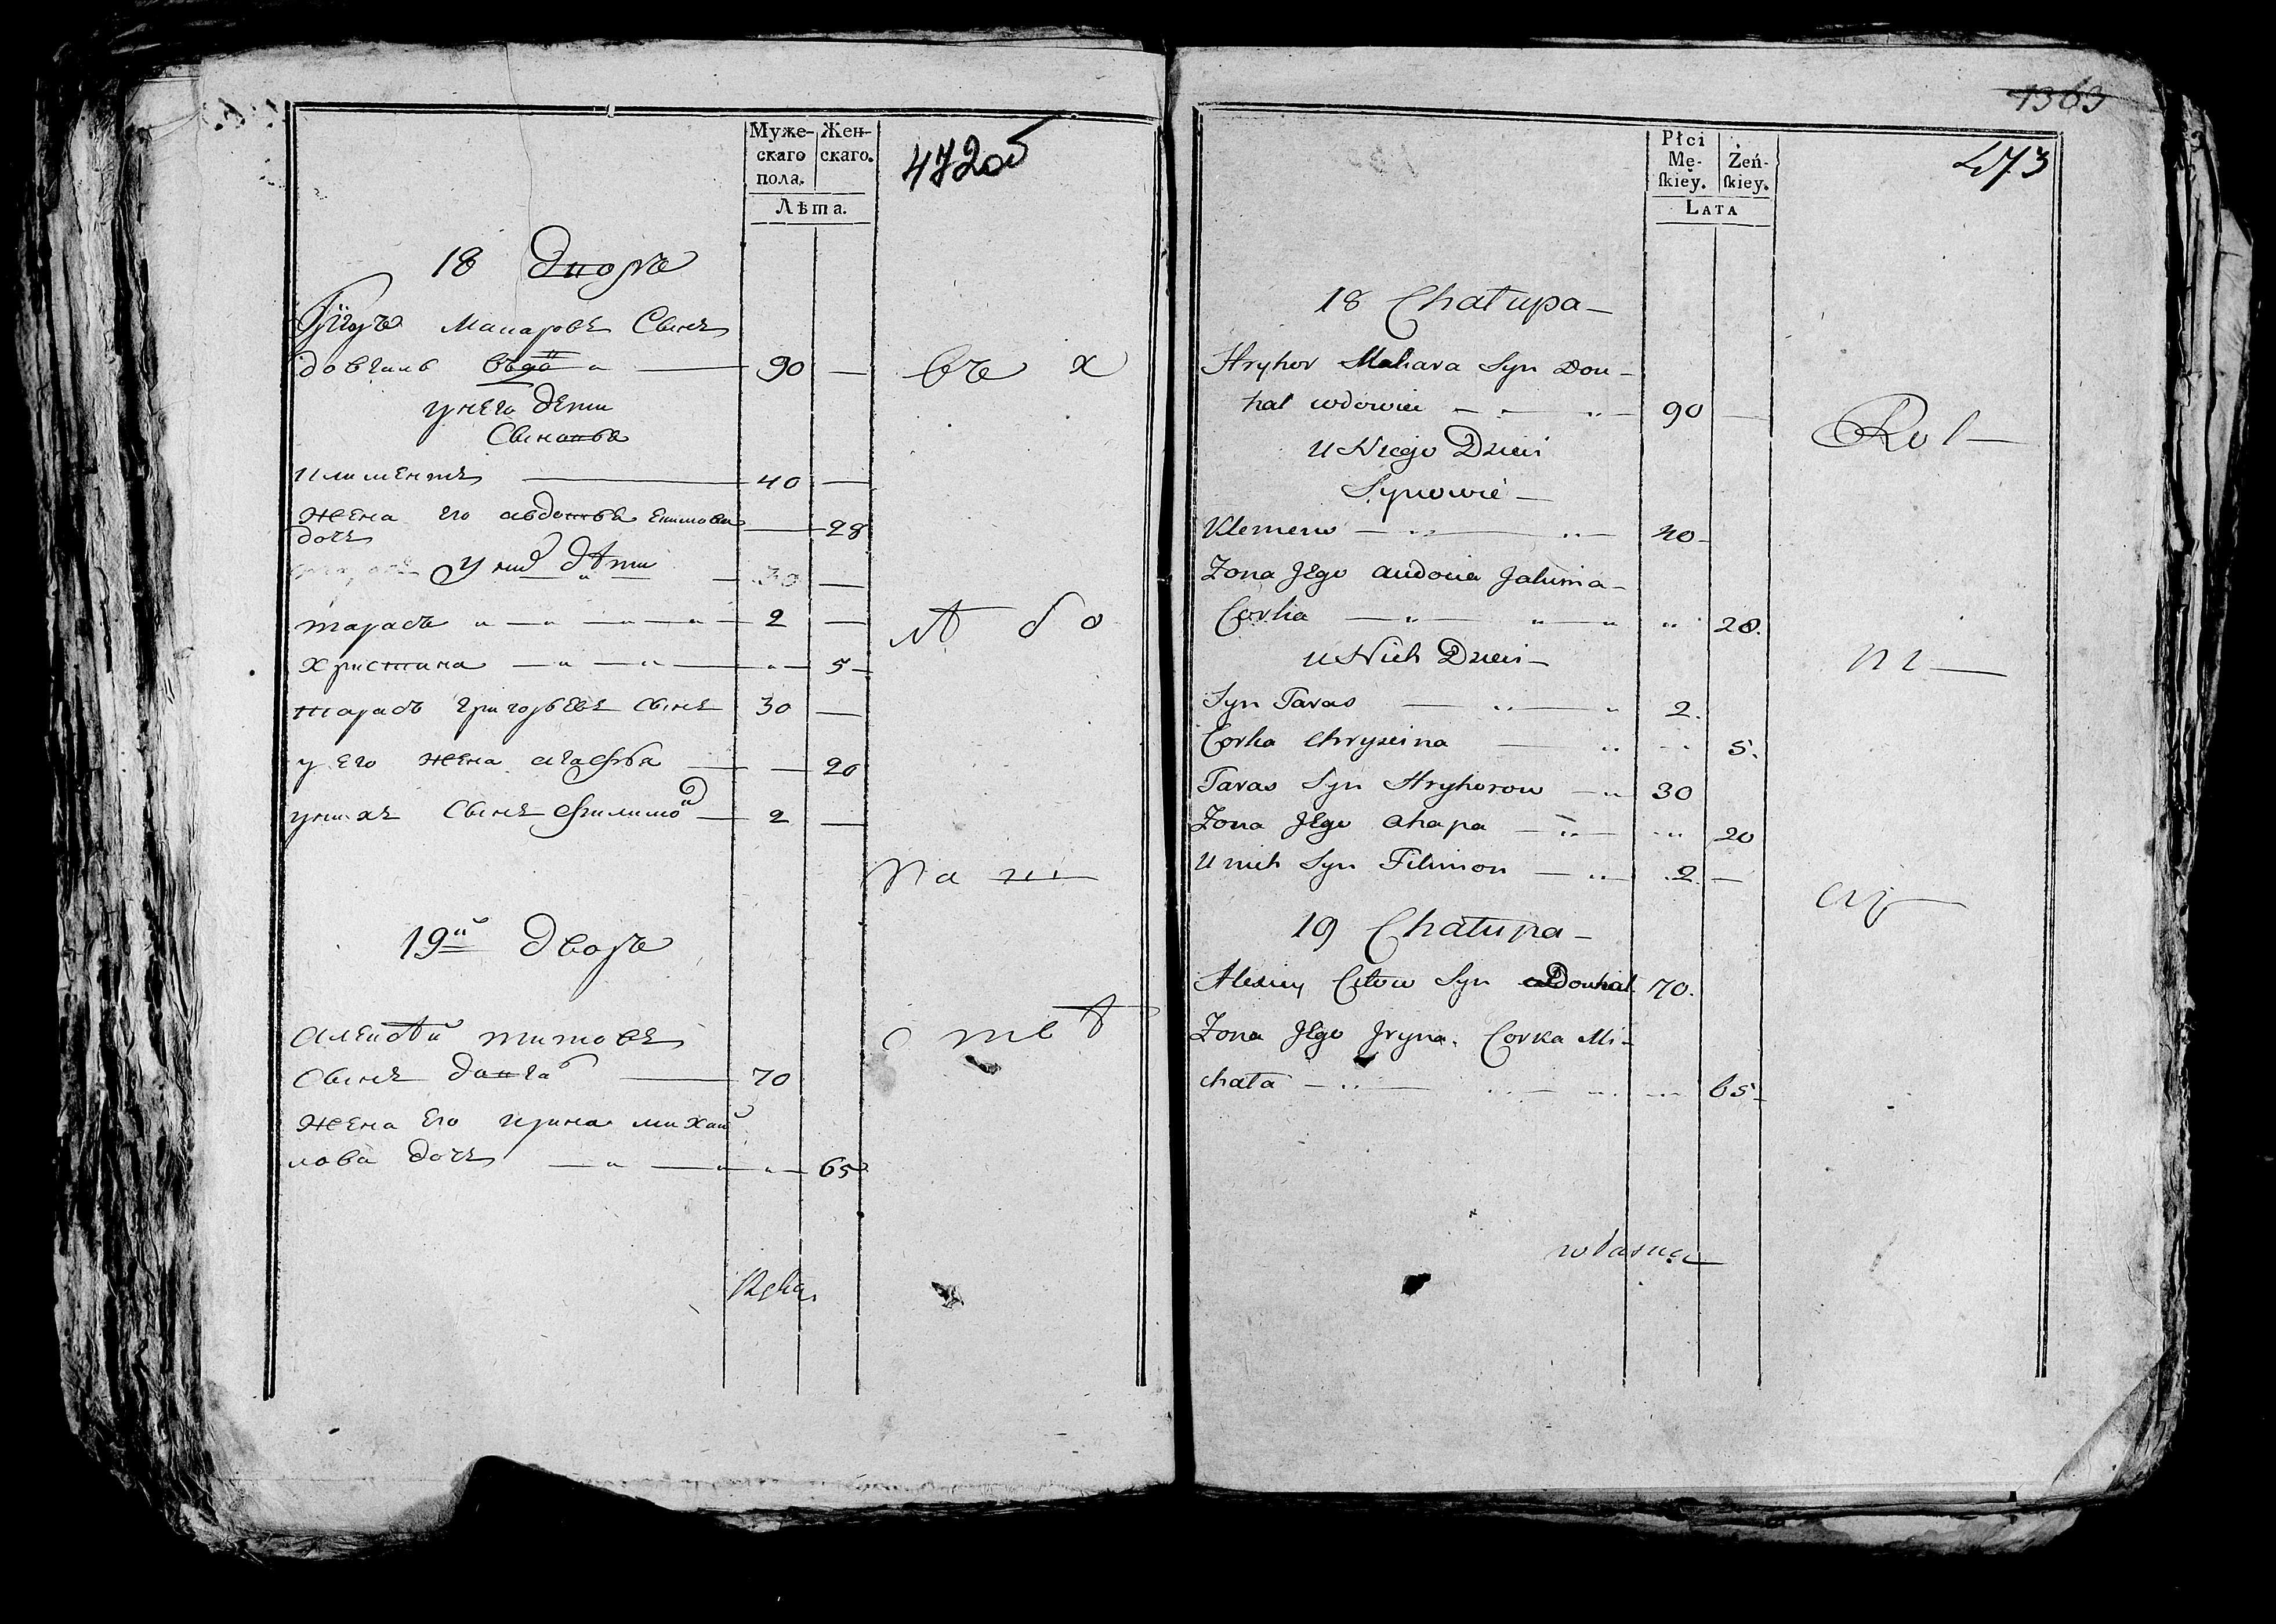 Муже-
скаго
пола.
Жен-
скаго.
Лѣта.
472об
18 Дворъ
Григоръ Макаровъ Сынъ
довгаль вдов 90
у него дети
Сыновья
Климентъ 40
жена его авдотья Екимова
дочъ 28
У них дѣти
30
тарасъ 2
христина 5
тарасъ григорьевъ сынъ 30
у Его жена агафья 20
у них сынъ филимон 2
19й дворъ
алексѣй титовъ
сынъ довгаль 70
жена Его ирина михай
лова дочъ 65
въ х
лѣ бо
па ш
с т в ѣ
1363
473
Płci
Mę-
skiey.
Żeń-
skiey.
LATA
18 Chałupa
Hryhor Makara Syn Dou-
hal wdowiec 90
U Niego Dzieci
Synowie
Klemens 40
Zona Jego audocia Jakima
Corka 28.
U Nich Dzieci
Syn Taras 2.
Corka Chryscina 5.
Taras Syn Hryhorow 30
Zona Jego ahapa 20
U nich Syn Filimon 2
19 Chałupa
Alexiey Citow Syn Douhal 70.
Zona Jego Jryna Corka Mi-
chała 65
Rol
ni
własną